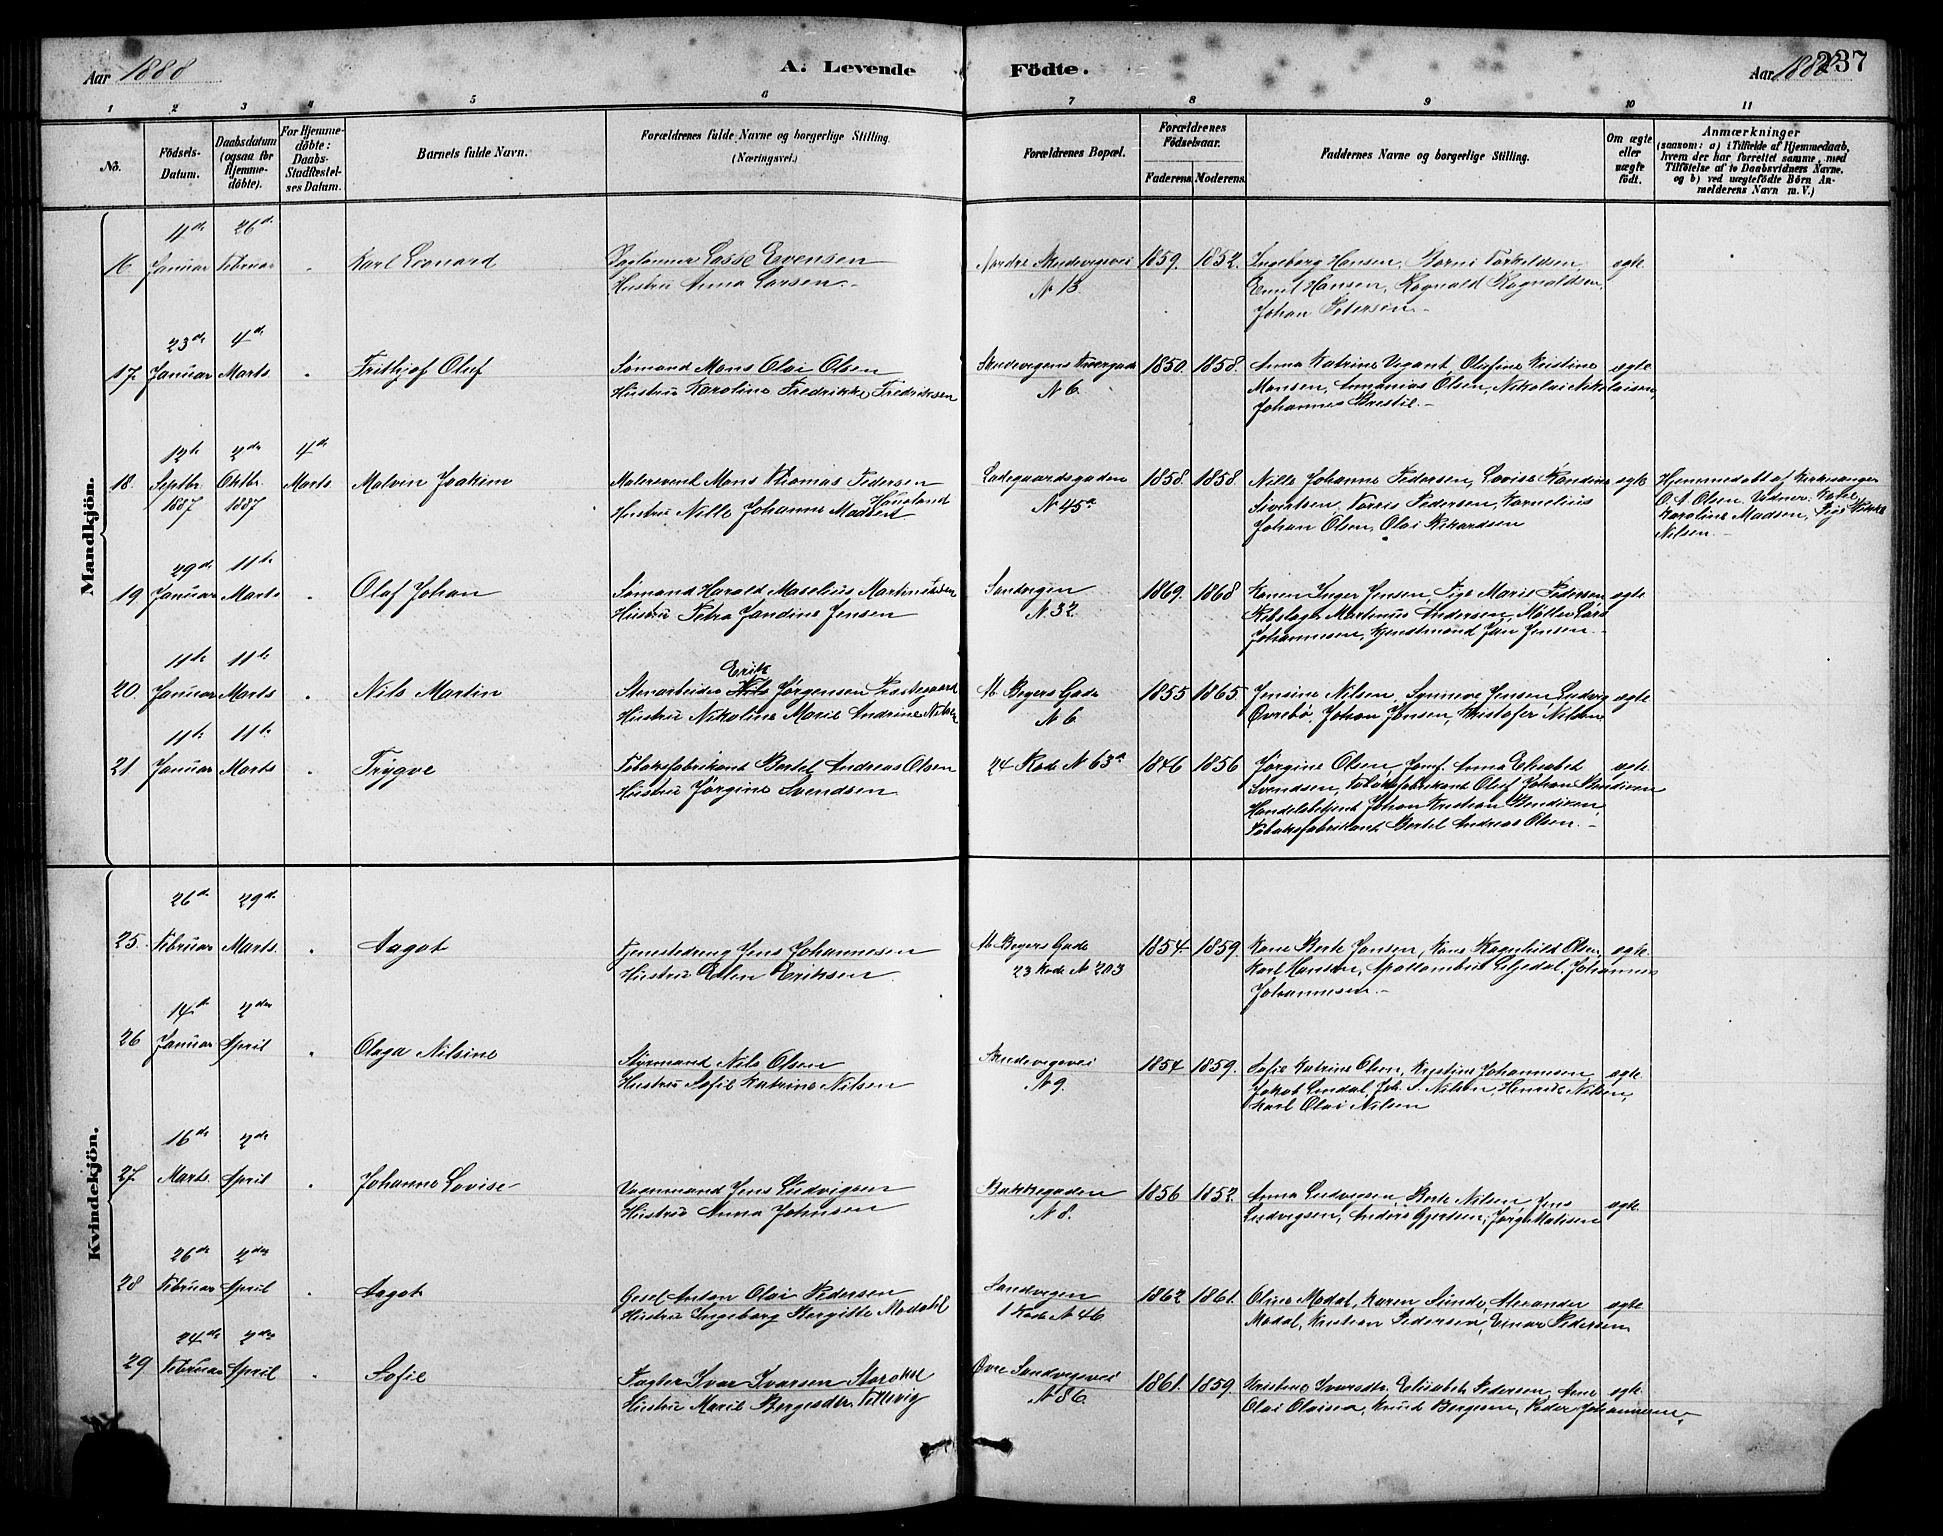 Aar 1888
A. Levende
Födte.
Aar 1888
237
1 2 3 4 5 6 7 8 9 10 11
No.
Födsels-Datum.
Daabsdatum (ogsaa for Hjemme-döbte).
For Hjemme-döbte: Daabs-Stadfæstel-ses Datum.
Barnets fulde Navn.
Forældrenes fulde Navne og borgerlige Stilling.
(Næringsvei.)
Forældrenes Bopæl.
Forældrenes Födselsaar.
Faderens Moderens
Faddernes Navne og borgerlige Stilling.
Om ægte eller uægte födt.
Anmærkninger
(saasom: a) i Tilfælde af Hjemmedaab,
hvem der har forrettet samme, med
Tilföielse af to Daabsvidners Navne,
og b) ved uægtefödte Börn An-
melderens Navn m. V.)
Mandkjön.
4de 26de
16 Januar Februar " Karl Leonard
Lasse Evensen
Hustru Anna Larsen
Nordre Skudevigsvei
N 13
1859. 1852.
Ingeborg Hansen, Torkeldsen,
Emil Hansen, Ragnald Ragnaldsen,
Johan Petersen
ægte
23de 4de
17. Januar Marts " Frithjof Oluf
Sømand Mons Olai Olsen
Hustru Karoline Fredrikke Fredriksen
Skudevigens Tvergade
N 6.
1850. 1858.
Anna Katrine Vegant, Olefine Kristine
Monsen, Ananias Olsen, Nikolai Nikolaisen,
Johannes Brestil.
ægte
12te 2den 4de
18. Septbr. Oktbr. Marts Malvin Joakim
1887 1887
Malersvend Mons Thomas Pedersen
Hustru Nille Johanne Madsen Haugland
Ladegaardsgaden
N 45a
1858. 1858.
Nille Johanne Pedersen, Lovise Randine
Sivertsen, Pedersen, Kornelius
Johan Olsen, Olai Rikardsen
ægte
Hjemmedøbt af Kirkesanger
O. A. Olsen. Vidner: Kone
Karoline Madsen, Pige
Nilsen.
29de 11te
19 Januar Marts " Olaf Johan
Sømand Harald Maselius Martin
Hustru Petra Jandine Jensen
Sandvigen
N 32
1869. 1868
Konen Inger Jensen, Pige Marie Pedersen
Rebslager Martinus Andersen, Møller Lars
Johannesen, Jan Jensen
ægte
11te 11te
20 Januar Marts " Nils Martin
Erik
Stenarbeider Nils Jørgensen
Hustru Nikoline Marie Andrine Nilsen
M. Beyers Gade
N 6
1855 1865
Jensine Nilsen, Synneve Jensen, Ludvig
Øvrebø, Johan Jensen, Kristofer Nilsen
ægte
11te 11te
21 Januar Marts " Trygve
Tobaksfabrikant Bertel Andreas Olsen
Hustru Jørgine Svendsen
24 Rode N 63a
1846 1856
Jørgine Olsen, Jomf. Anna Elisabet
Svendsen, Tobaksfabrikant Oluf Johan Bendixen
Handelsbetjent Johan Kristian Bendixen,
Tobaksfabrikant Bertel Andreas Olsen.
ægte
Kvindekjön.
26de 29de
25. Februar Marts. " Aagot
Tjenestedreng Jens Johannesen
Hustru Eriksen
M. Beyers Gade
23 Rode N 203
1854. 1859.
Kone Berte Jansen, Kone Ragnhild Olsen,
Karl Hansen, Johannes
Johannesen
ægte
14de 2den
26 Januar April " Olaga Nilsine
Styrmand Nils Olsen
Hustru Sofie Katrine Nilsen
Skudevigsvei
N 9.
1854 1859.
Sofie Katrine Olsen, Kristine Johannesen,
Jakob Lindal, Joh. S. Nilsen, Henrik Nilsen,
Karl Olai Nilsen
ægte
16de 2den
27. Marts. April " Johanne Lovise
Vognmand Jens Ludvigsen
Hustru Anna Johnsen
Bakkegaden
N 8.
1856 1852.
Anna Ludvigsen, Berte Nilsen, Jens
Ludvigsen, Anders Gjertsen, Jørgen Madsen
ægte
26de 2den
28 Februar April " Aagot
Gesel Anton Olai Pedersen
Hustru Ingeborg Bergitte Modahl
Sandvigen
1 Rode N 46
1862 1861.
Oline Modal, Karen Sunde, Alexander
Modal, Kristian Pedersen, Einar Pedersen
ægte
24de 2den
29 Februar April " Sofie
Fagter Ivar Ivarsen
Hustru Marie Børgesdtr.
Øvre Sandvigsvei
N 86.
1861. 1859.
Kristine Ivarsdtr. Elisabet Pedersen, Arne
Olai Olaisen, Knud Børgesen, Peder Johannesen.
ægte